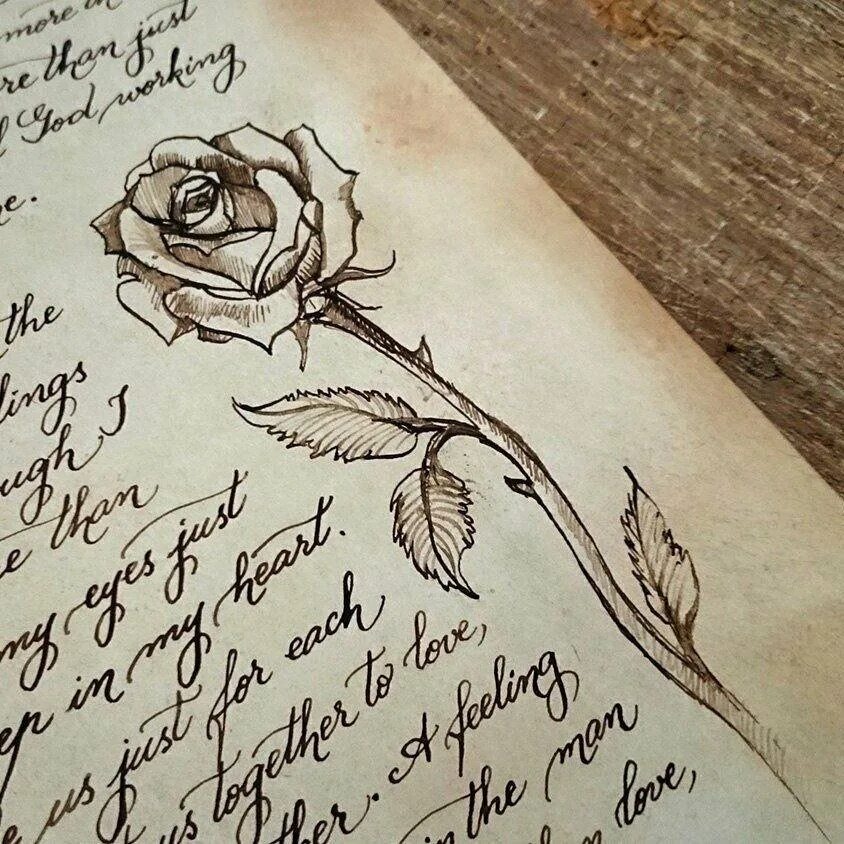 more in
than just
God working
the
I
than
my eyes just
in my heart.
us just for each
us together to love,
A feeling
in the man
love,